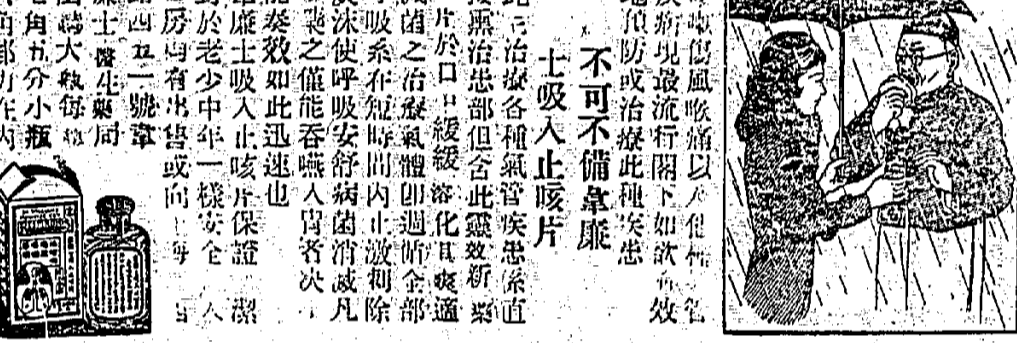 嗽傷風喉痛以及
疾病現最流行閣下如欲有效
地預防或治療此種疾患
不可不備韋廉
士吸入止咳片
治療各種氣管疾患係直
接熏治患部但含此靈效新藥
片於口中緩緩溶化其爽適
菌之治療氣體即週佈全部
呼吸系在短時間內止激刺除
痰沫使呼吸安舒病菌消滅凡
藥之僅能吞嚥入胃者決
能奏效如此迅速也
廉士吸入止咳片保證 潔
對於老少中年一樣安全
房均有出售或向上海
路四五一號韋
廉士醫生藥局
大瓶每
角九分小瓶